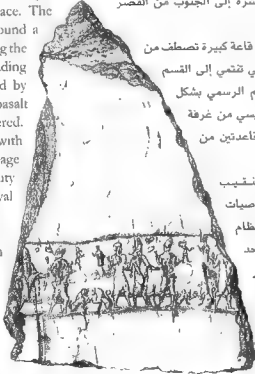 ace. The
ound a
g the
ding
d by
basalt
ered.
with
age
uty
val
إلى الجنوب من القصر
قاعة كبيرة تصطف من
ي تنتمي إلى القسم
م الرسمي بشكل
يسي من غرفة
قاعدتين من
تنقيب
صيات
ظام
حد